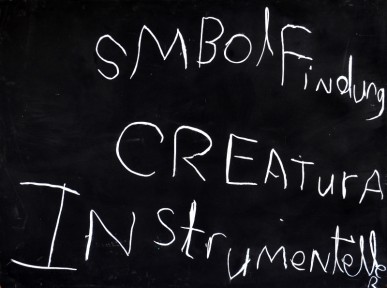 SMBOlFindung
CREATurA
INstrumentelleR